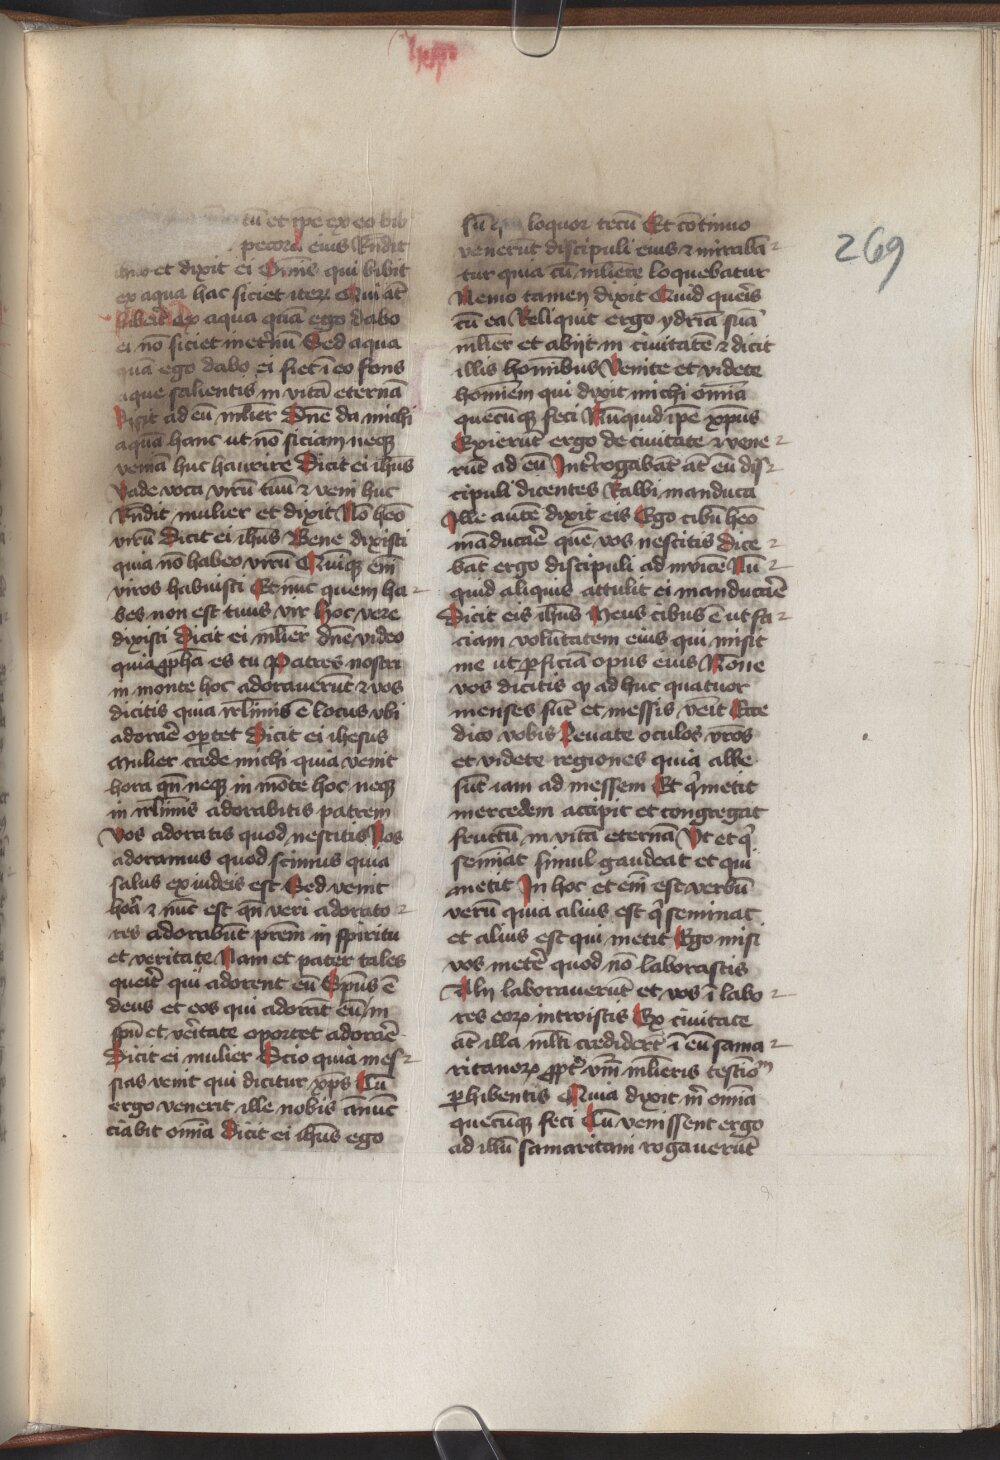 269
tū et ip̄e ex eo bib
pecora eius Rn̄dit
ihūs et dixit ei Om̄is qui bibit
ex aqua hac siciet iterꝝ Qui āt
biberit ex aqua quā ego dabo
ei nō siciet met̄nū Sed aqua
quā ego dabo ei fiet ī eo fons
aque salientis in vitā eternā
Dicit ad eū mlīer Dn̄e da michi
aquā hanc ut nō siciam neqꝫ
veniā huc haurire Dicit ei ihūs
Vade voca virū tuū ⁊ veni huc
Rn̄dit mulier et dixit Nō hēo
virū Dicit ei ihūs Bene dixisti
quia nō habeo virū Quīqꝫ em̄
viros habuisti Et nūc quem ha
bes non est tuus vir hoc vere
dixisti Dicit ei mlīer dn̄e video
quia ꝓph̄a es tu Patres nostri
in monte hoc adoraverūt ⁊ vos
dicitis quia irl̄imis ē locus vbi
adorar̄e oꝑtet Dicit ei ihesus
Mulier crede michi quia venit
hora qn̄ neqꝫ in mōte hoc neqꝫ
in irl̄imis adorabitis patrem
Vos adoratis quod nescitis Nos
adoramus quod scimus quia
salus ex iudeis est Sed venit
hor̄a ⁊ nūc est qn̄ veri adorato
res adorabūt pr̄em in spiritu
et veritate Nam et pater tales
quer̄it qui adorent eū Sp̄us ē
deus et eos qui adorāt eū in
sp̄u et ver̄itate oportet adorar̄e
Dicit ei mulier Scio quia mes
sias venit qui dicitur xp̄s Cū
ergo venerit ille nobis ānūc
ciabit om̄ia Dicit ei ihūs ego
sū qui loquor tecū Et cōtinuo
venerūt discipuli eius ⁊ mirabā
tur quia cū mlīere loquebatur
Nemo tamen dixit Quid quer̄is
cū ea Reliquit ergo ydriā suā
mlīer et abijt in civitatē ⁊ dicit
illis hominibus Venite et videte
homīem qui dixit michi om̄ia
quecūqꝫ feci Nūquid ip̄e xp̄us
Exierūt ergo de civitate ⁊ vene
rūt ad eū Int̄rogabāt āt eū dis
cipuli dicentes Rabbi manduca
Ille autē dixit eis Ego cibū hēo
māducar̄e quē vos nescitis Dice
bāt ergo discipuli ad invicē Nū
quid aliquis attulit ei manducar̄e
Dicit eis ihūs Meus cibus ē ut fa
ciam volūtatem eius qui misit
me ut ꝑficiā opus eius Nōne
vos dicitis qꝫ ad huc quatuor
menses sūt et messis ven̄it Ecce
dico vobis Levate oculos vr̄os
et videte regiones quia albe
sūt iam ad messem Et q̄ metit
mercedem accipit et congregat
fructū in vitā eternā Vt et q̄
semīat simul gaudeat et qui
metit In hoc et em̄ est verbū
verū quia alius est q̄ seminat
et alius est qui metit Ego misi
vos meter̄e quod nō laborastis
Alij laboraverūt et vos ī labo
res eorꝝ introistis Ex civitate
āt illa ml̄ti credider̄t ī eū sama
ritanorꝝ ꝓpt̄ vm̄ mlīeris testiom̄
ꝑhibentis Quia dixit m̄ om̄ia
quecūqꝫ feci Cū venissent ergo
ad illū samaritani rogaverūt